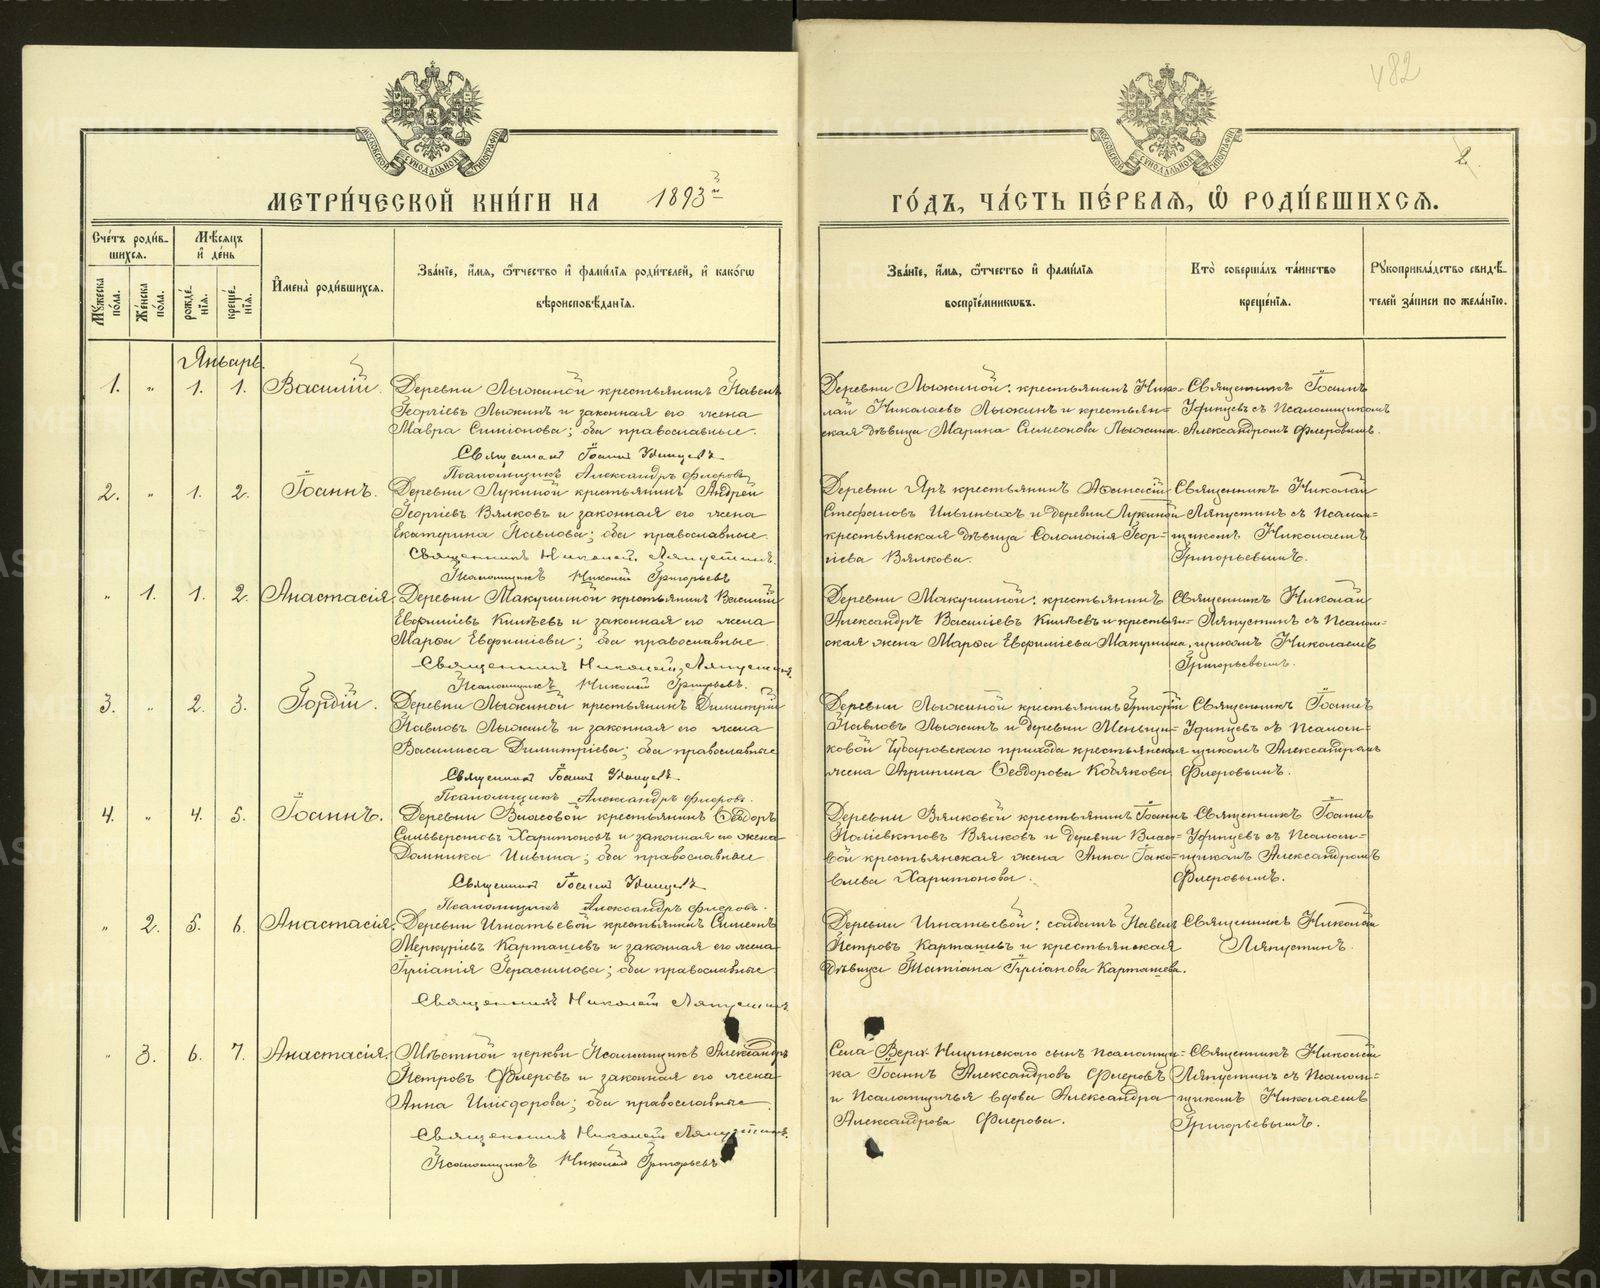 482
2.
МОСКОВСКОЙ СѴНОДАЛЬНОЙ ТИПОГРАФІИ
МОСКОВСКОЙ СѴНОДАЛЬНОЙ ТИПОГРАФІИ
МЕТРИ́ЧЕСКОЙ КНИ́ГИ НА 1893й
ГО́ДЪ, ЧА́СТЬ ПЕ́РВАѦ, Ѽ РОДИ́ВШИХСѦ.
Сче́тъ роди́в-
шихся.
Мѣ́сяцъ
и де́нь
Му́жеска по́ла.
Же́нска по́ла.
рожде́нія.
креще́нія.
Имена̀ роди́вшихся.
Зва́ніе, и́мя, ѻ́тчество и фами́лія роди́телей, и како́гѡ
вѣроисповѣ́данія.
Зва́ніе, и́мя, ѻ́тчество и фами́лія
воспріе́мникѡвъ.
Кто̀ соверша́лъ та́инство
креще́нія.
Рукоприкла́дство свидѣ́-
телей за́писи по жела́нію.
Январь.
1. " 1. 1. Василій.
Деревни Лыжиной крестьянинъ Павелъ
Георгіевъ Лыжинъ и законная его жена
Мавра Симіонова; оба православные.
Священникъ Іоаннъ Уфинцевъ
Псаломщикъ Александръ Флеровъ
Деревни Лыжиной: крестьянинъ Нико-
лай Николаевъ Лыжинъ и крестьян-
ская дѣвица Марина Симеонова Лыжина.
Священникъ Іоаннъ
Уфинцевъ съ Псаломщикомъ
Александромъ Флеровымъ.
2. " 1. 2. Іоаннъ.
Деревни Лукиной крестьянинъ Андрей
Георгіевъ Вялковъ и законная его жена
Екатерина Павлова; оба православные.
Священникъ Николай Ляпустинъ
Псаломщикъ Николай Григорьевъ
Деревни Яръ крестьянинъ Аѳанасій
Стефановъ Ильиныхъ и деревни Лукиной
крестьянская дѣвица Соломонія Геор-
гіева Вялкова.
Священникъ Николай
Ляпустинъ съ Псалом-
щикомъ Николаемъ
Григорьевымъ.
" 1. 1. 2. Анастасія.
Деревни Макушиной крестьянинъ Василій
Евфиміевъ Кинѣевъ и законная его жена
Марѳа Евфиміева; оба православные.
Священникъ Николай Ляпустинъ
Псаломщикъ Николай Григорьевъ.
Деревни Макушиной: крестьянинъ
Александръ Василіевъ Кинѣевъ и крестьян-
ская жена Марѳа Евфиміева Макушина.
Священникъ Николай
Ляпустинъ съ Псалом-
щикомъ Николаемъ
Григорьевымъ.
3. " 2. 3. Гордій.
Деревни Лыжиной крестьянинъ Димитрій
Павловъ Лыжинъ и законная его жена
Василисса Димитріева; оба православные
Священникъ Іоаннъ Уфинцевъ
Псаломщикъ Александръ Флеровъ.
Деревни Лыжиной крестьянинъ Григорій
Павловъ Лыжинъ и деревни Меньщи-
ковой Чубаровскаго прихода крестьянская
жена Агрипина Ѳеодорова Кобякова.
Священникъ Іоаннъ
Уфинцевъ съ Псалом-
щикомъ Александромъ
Флеровымъ.
4. " 4. 5. Іоаннъ.
Деревни Власовой крестьянинъ Ѳеодоръ
Сильверстовъ Харитоновъ и законная его жена
Домника Ильина; оба православные
Священникъ Іоаннъ Уфинцевъ
Псаломщикъ Александръ Флеровъ.
Деревни Вялковой крестьянинъ Іоаннъ
Поліевктовъ Вялковъ и деревни Власо-
вой крестьянская жена Анна Іако-
влева Харитонова.
Священникъ Іоаннъ
Уфинцевъ съ Псалом-
щикомъ Александромъ
Флеровымъ.
" 2. 5. 6. Анастасія.
Деревни Игнатьевой крестьянинъ Симеонъ
Меркуріевъ Карташевъ и законная его жена
Іуліанія Герасимова; оба православные.
Священникъ Николай Ляпустинъ
Деревни Игнатьевой: солдатъ Павелъ
Петровъ Карташевъ и крестьянская
дѣвица Татіана Іуліанова Карташева.
Священникъ Николай
Ляпустинъ.
" 3. 6. 7. Анастасія.
Мѣстной церкви Псаломщикъ Александръ
Петровъ Флеровъ и законная его жена
Анна Исидорова; оба православные.
Священникъ Николай Ляпустинъ.
Псаломщикъ Николай Григорьевъ
Села Верх-Ницинскаго сынъ псаломщи-
ка Іоаннъ Александровъ Флеровъ
и Псаломщичья вдова Александра
Александрова Флерова.
Священникъ Николай
Ляпустинъ съ Псалом-
щикомъ Николаемъ
Григорьевымъ.
METRIKI.GASO-URAL.RU